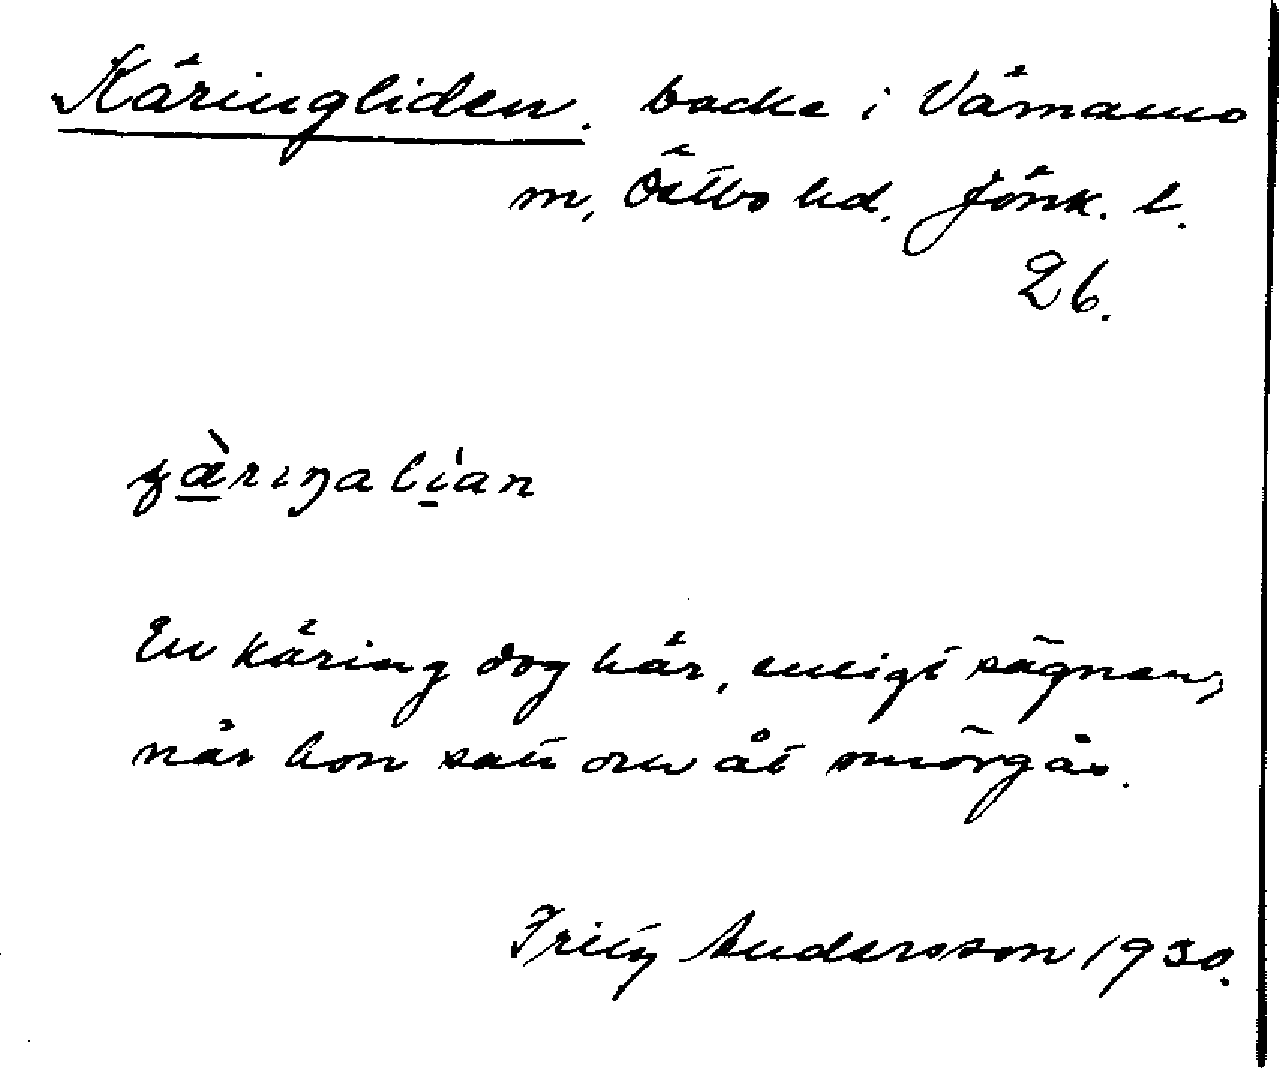 Käringliden. backe i Värnamo
m, Östbo hd. Jönk. l.
26.
ɕæ̀rıŋalían
En käring dog här, enligt sägnen,
när hon satt ou åt smörgås.
Fritz Andersson 1930.